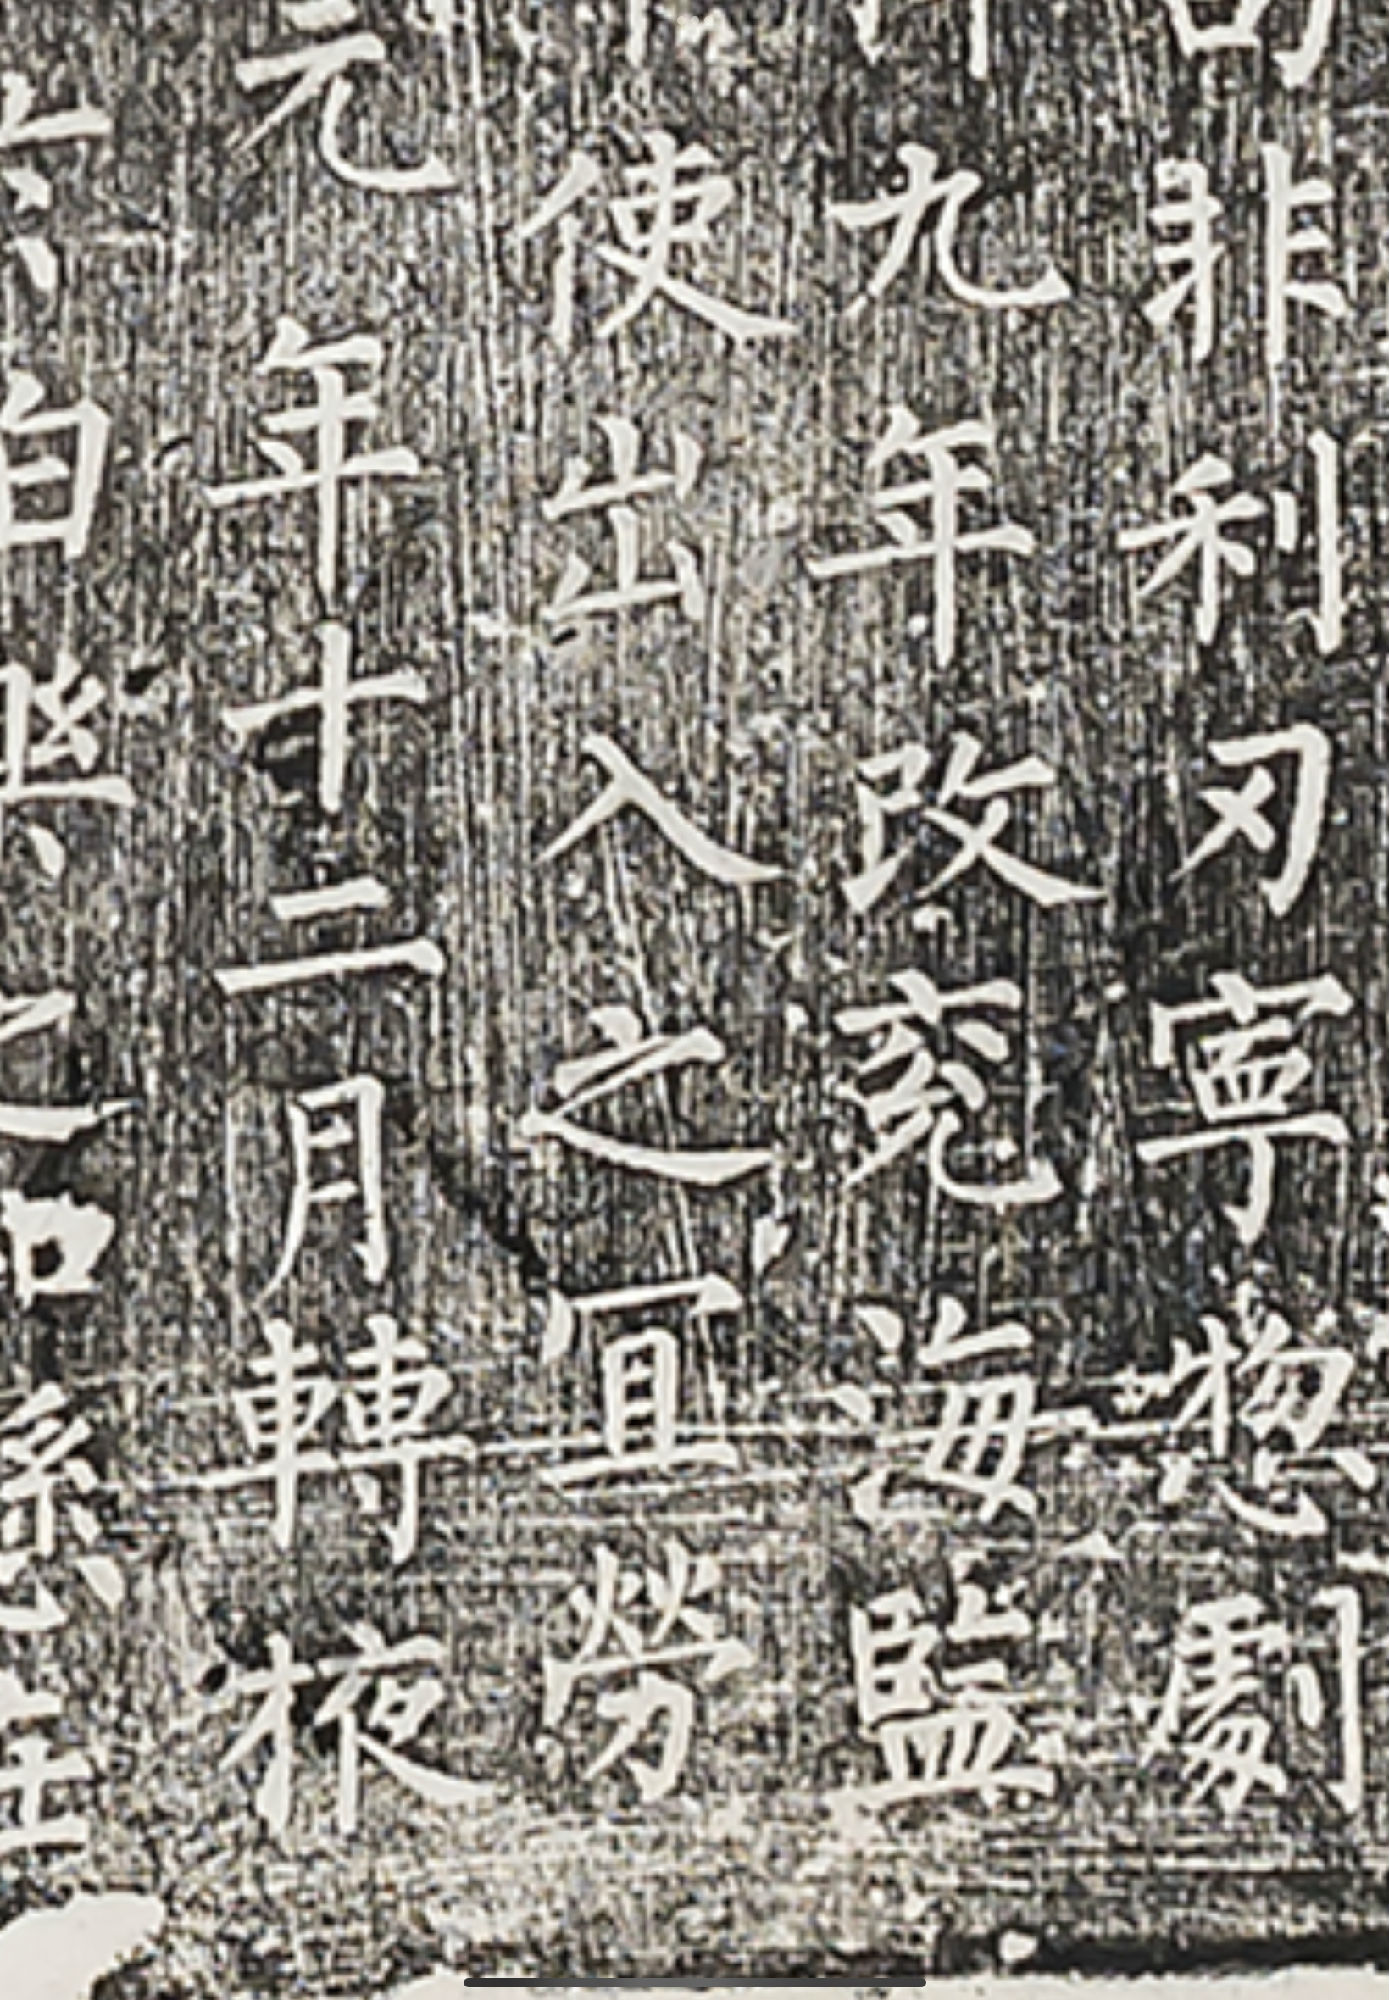 非利刃寧惣劇
九年改兖海監
使出入之冝勞
元年十二月轉掖